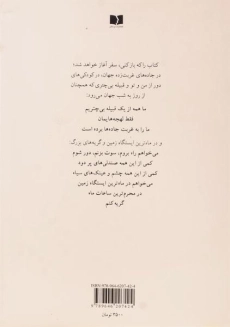 کتاب را که باز کنی، سفر آغاز خواهد شد؛
در جاده‌های غربت‌زده جهان، در کودکی‌های
دور از من و تو و قبیله بی‌چتری که همچنان
از روز به شب جهان می‌رود:
ما همه از یک قبیله بی‌چتریم
فقط لهجه‌هایمان
ما را به غربت جاده‌ها برده است
و در مادترین ایستگاه زمین و گریه‌های بزرگ:
می‌خواهم راه بروم، سوت بزنم، دور شوم
کمی از این همه صندلی‌های پر دود
کمی از این همه چشم و عینک‌های سیاه
می‌خواهم در مادترین ایستگاه زمین
در محرم‌ترین ساعات ماه
گریه کنم
۲۵۰۰ تومان